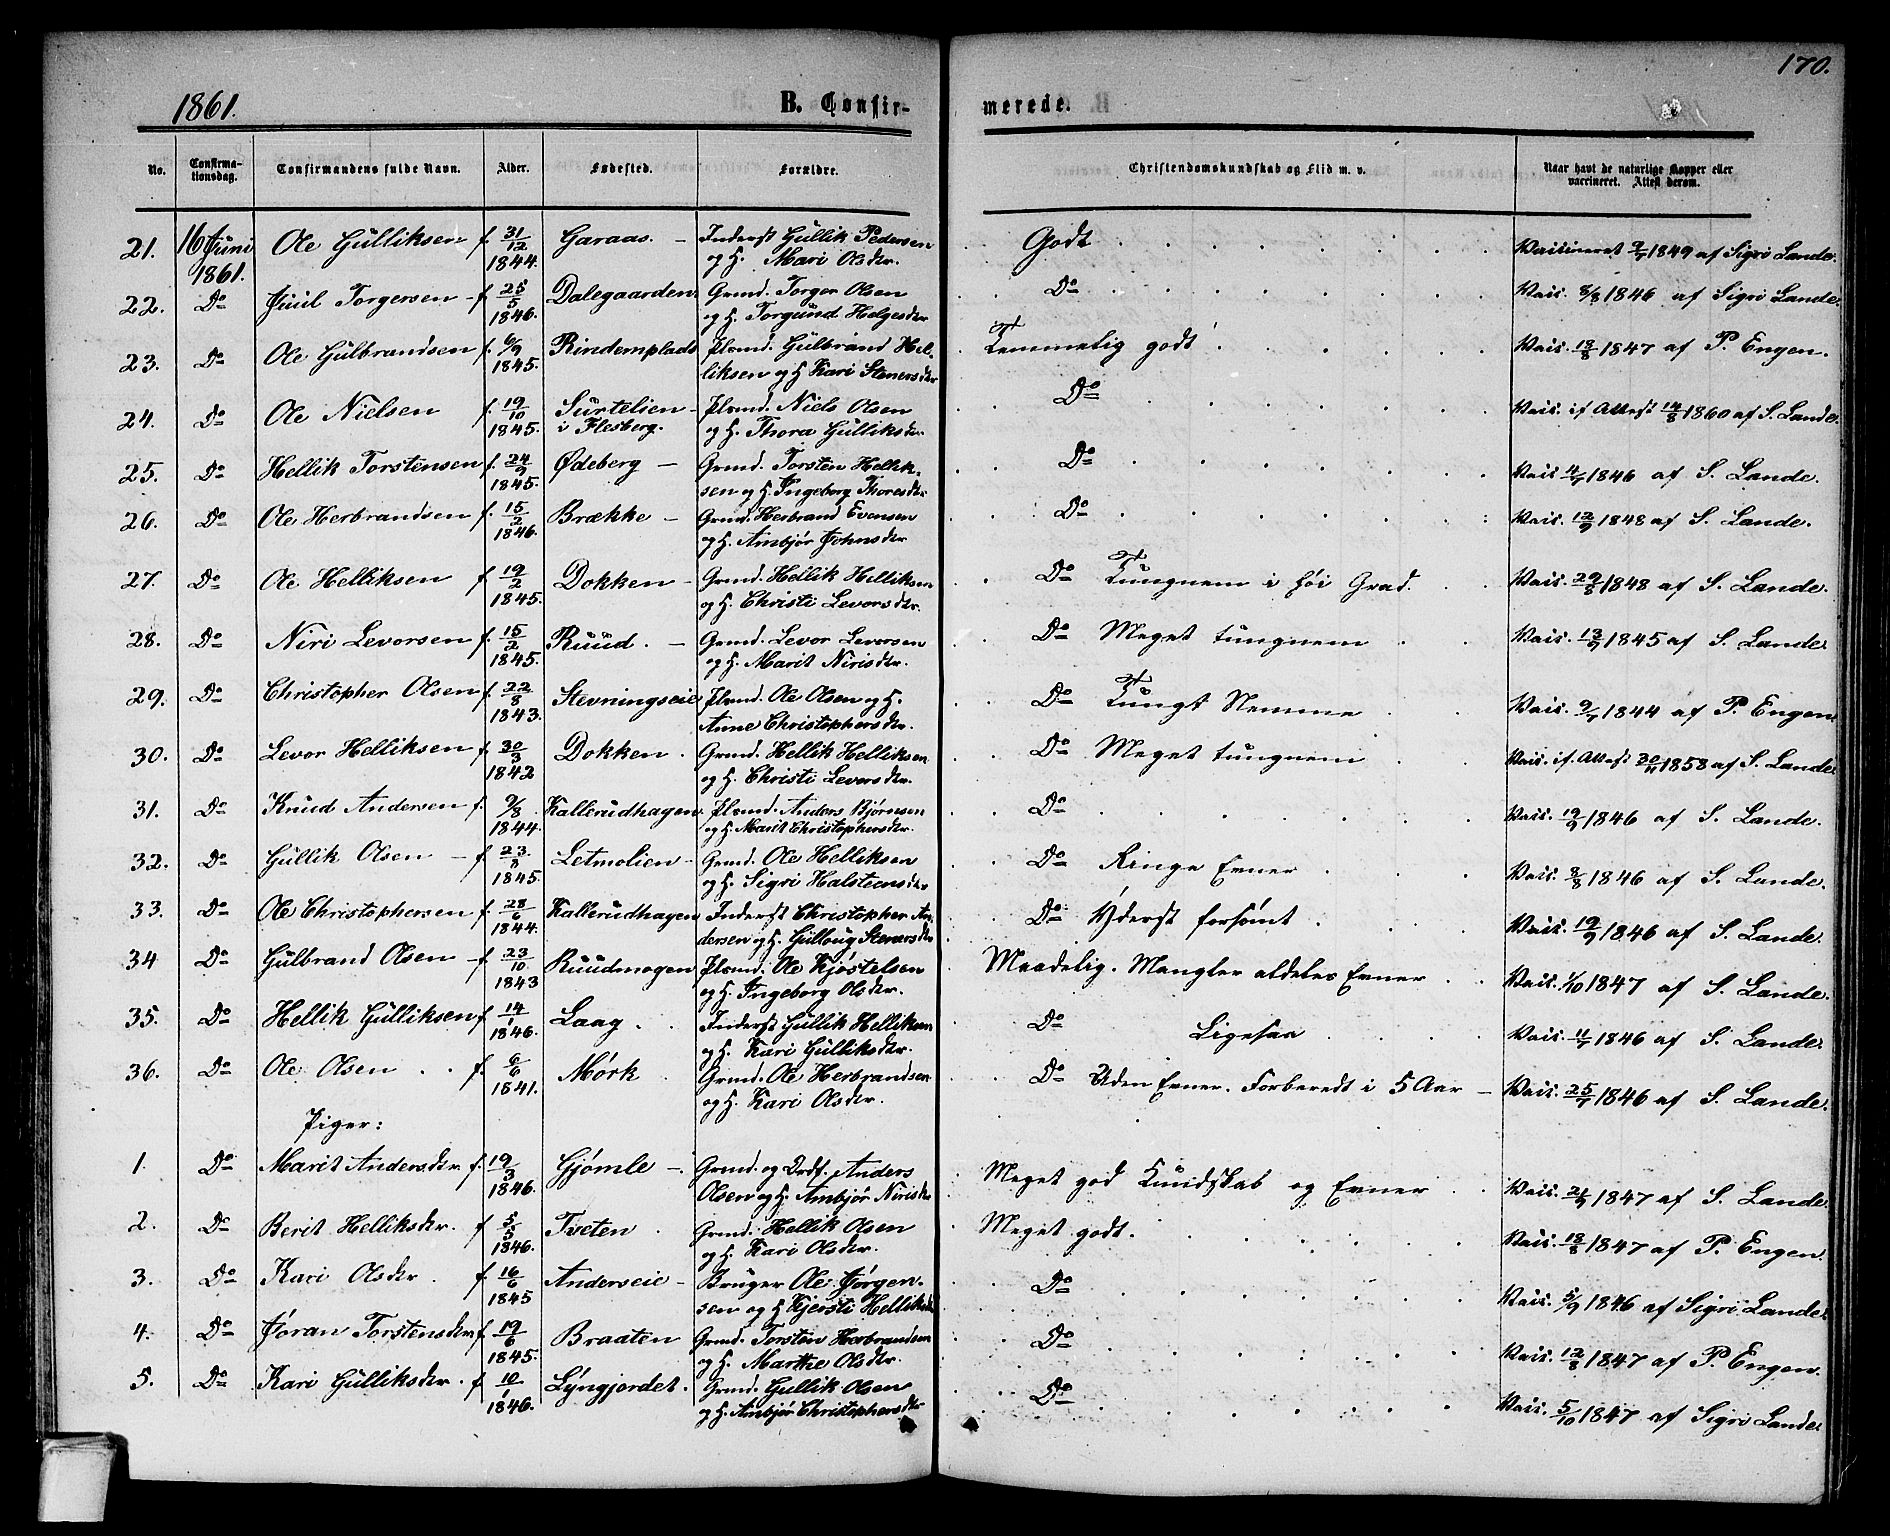 170.
1861. B. Confir- merede.
No. Confirma-tionsdag. Confirmandens fulde Navn. Alder. Fødested. Forældre. Christendomskundskab og Flid m. v. Naar havt de naturlige Kopper eller vaccineret. Attest derom.
21. 16 Juni 1861. Ole Gulliksen f. 31/12 1844. Garaas. – Inderst Gullik Pedersen og H. Mari Olsdr. Godt Vaccineret 9/7 1849 af Sigri Lande.
22. Do Juul Torgersen – f. 25/5 1846. Dalegaarden Grmd. Torger Olsen og H. Torgund Helgesdr Do Vacc. 8/8 1846 af Sigri Lande.
23. Do Ole Gulbrandsen f. 6/9 1845. Rindemplads Plsmd. Gulbrand Helliksen og H Kari Stenersdr Temmelig godt Vacc. 18/8 1847 af P. Engen.
24. Do Ole Nielsen f. 19/10 1845. Surtelien – i Flesberg. Plsmd. Niels Olsen og H. Thora Gulliksdr. Do Vacc. if Attest 14/8 1860 af S. Lande.
25. Do Hellik Torstensen f. 24/9 1845. Ødeberg – Grmd. Torsten Helliksen og H. Ingeborg Thoresdr Do Vacc. 4/7 1846 af S. Lande.
26. Do Ole Herbrandsen f. 15/2 1846. Brække – Grmd. Herbrand Evensen og H. Ambjør Johnsdr Do Vacc. 12/9 1848 af S. Lande.
27. Do Ole Helliksen f. 19/2 1845. Dokken – Grmd. Hellik Helliksen og H. Christi Levorsdr. Do Tungnem i høi Grad. Vacc. 29/8 1848 af S. Lande.
28. Do Niri Levorsen f. 15/2 1845. Ruud. – Grmd. Levor Levorsen og H. Marit Nirisdr. Do Meget tungnem Vacc. 13/9 1845 af S. Lande.
29. Do Christopher Olsen f. 22/8 1843. Stevningseie Plsmd. Ole Olsen og H. Anne Christophersdr. Do Tungt Nemme Vacc. 9/7 1844 af P. Engen.
30. Do Levor Helliksen f. 30/3 1842 Dokken. Grmd. Hellik Helliksen og H. Christi Levorsdr. Do Meget tungnem Vacc. if. Attest 30/11 1858 af S. Lande.
31. Do Knud Andersen f. 9/8 1844. Kallerudhagen Plsmd. Anders Bjørnsen og H. Marit Christophersdr. Do Vacc. 19/9 1846 af S. Lande.
32. Do Gullik Olsen – f. 23/8 1845. Letmolien – Grmd. Ole Helliksen og H. Sigri Halstensdr Do Ringe Evner Vacc. 8/8 1846 af S. Lande.
33. Do Ole Christophersen f. 28/6 1844. Kallerudhagen Inderst Christopher Andersen og H. Gulloug Stenersdr Do Yderst forsømt Vacc. 19/9 1846 af S. Lande.
34 Do Gulbrand Olsen – f. 23/10 1843 Ruudmogen Plsmd. Ole Kjøstelsen og H. Ingeborg Olsdr. Maadelig. Mangler aldeles Evner Vacc. 1/10 1847 af S. Lande.
35. Do Hellik Gulliksen f 14/1 1846. Laag. Inderst Gullik Helliksen og H. Kari Gulliksdr. Do Ligesaa Vacc. 11/7 1846 af S. Lande.
36. Do Ole Olsen f. 6/6 1841. Mørk Grmd. Ole Herbrandsen og H. Kari Olsdr. Do Uden Evner. Forberedt i 5 Aar – Vacc. 25/7 1846 af S. Lande.
Piger:
1. Do Marit Andersdr. f. 19/3 1846. Gjømle – Grmd. og Ordf. Anders Olsen og H. Ambjør Nirisdr Meget god Kundskab og Evner Vacc. 21/9 1847 af S. Lande.
2. Do Berit Helliksdr. f 5/5 1846. Tveten Grmd. Hellik Olsen og H. Kari Olsdr. Meget godt. Vacc. 18/8 1847 af P. Engen.
3. Do Kari Olsdr. f. 16/6 1845 Anderseie – Bruger Ole Jørgensen og H Kjersti Helliksdr Do Vacc. 5/9 1846 af Sigri Lande.
4. Do Jøran Torstensdr. f 19/6 1845. Braaten Grmd. Torsten Herbrandsen og H. Marthe Olsdr. Do Vacc. 12/8 1847 af P. Engen.
5. Do Kari Gulliksdr. f 10/1 1846. Lyngjordet. Grmd. Gullik Olsen og H. Ambjør Christophersdr Do Vacc. 5/10 1847 af Sigri Lande